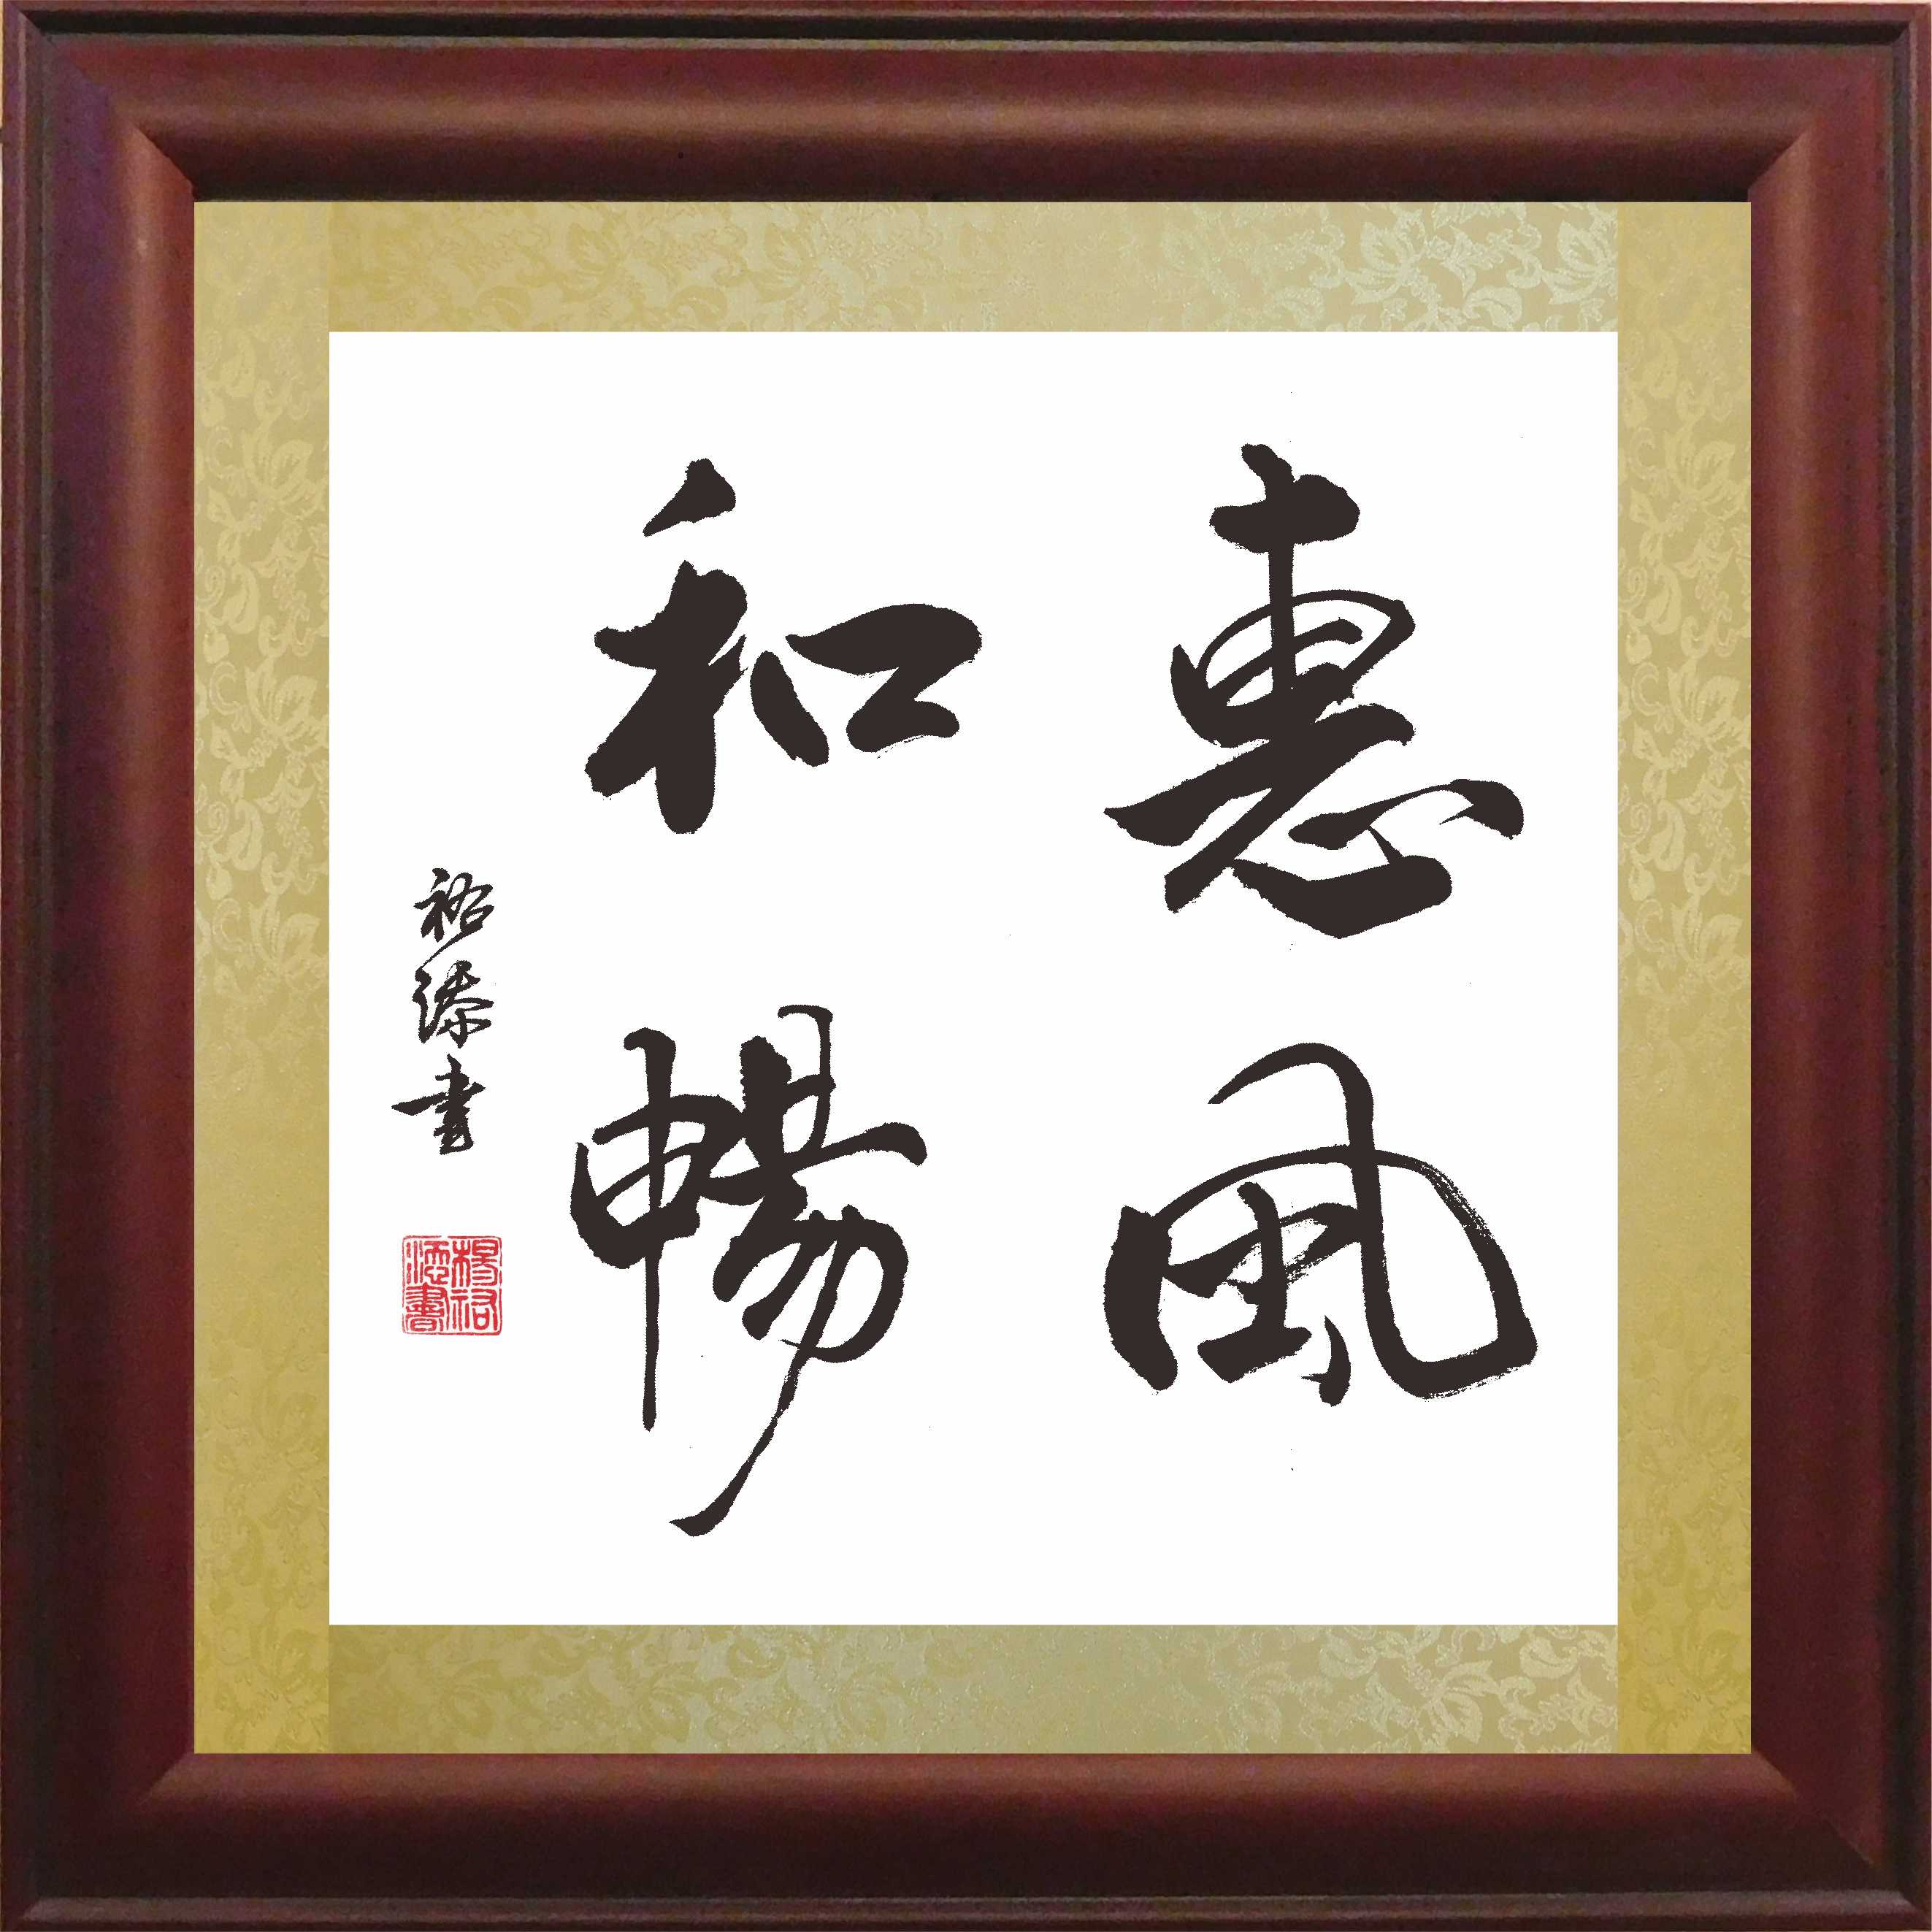 惠風
和暢
裕添書
楊裕
添書